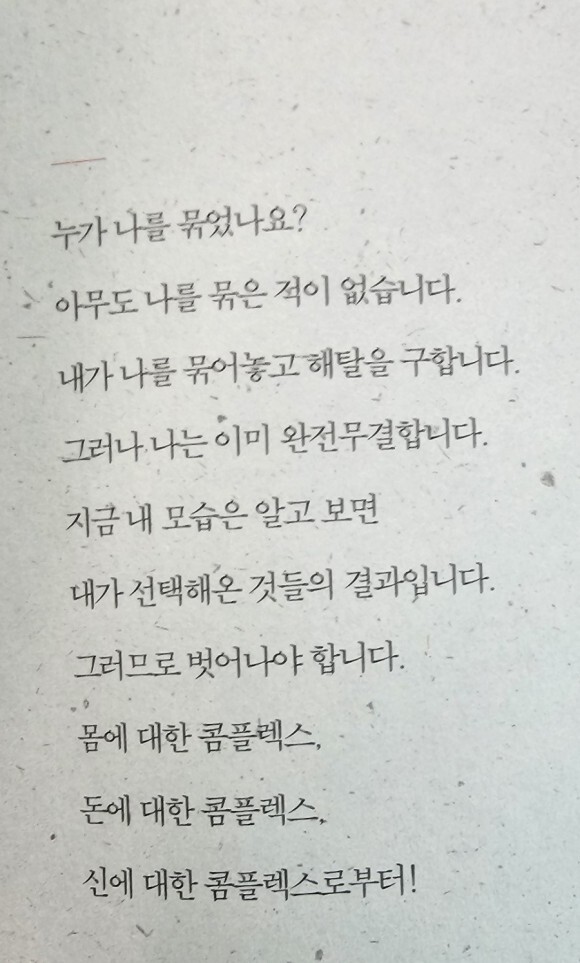 누가 나를 묶었나요?
아무도 나를 묶은 적이 없습니다.
내가 나를 묶어놓고 해탈을 구합니다.
그러나 나는 이미 완전무결합니다.
지금 내 모습은 알고 보면
대가 선택해온 것들의 결과입니다.
그러므로 벗어나야 합니다.
몸에 대한 콤플렉스,
돈에 대한 콤플렉스,
신에 대한 콤플렉스로부터!